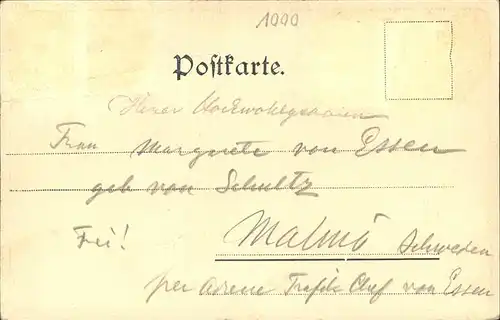 1000
Postkarte.
Ihrer Hochwohlgeboren
Frau Margarete von Essen
geb von Schultz
Frei! Malmö Schweden
per Adresse Trafik Chef von Essen